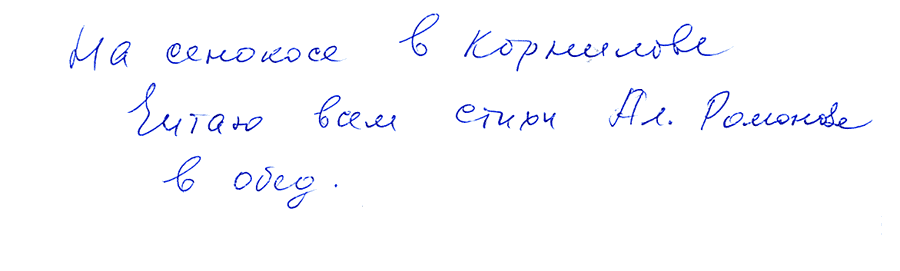 На сенокосе в Корнилове
Читаю вам стихи Ал. Романова
в обед.